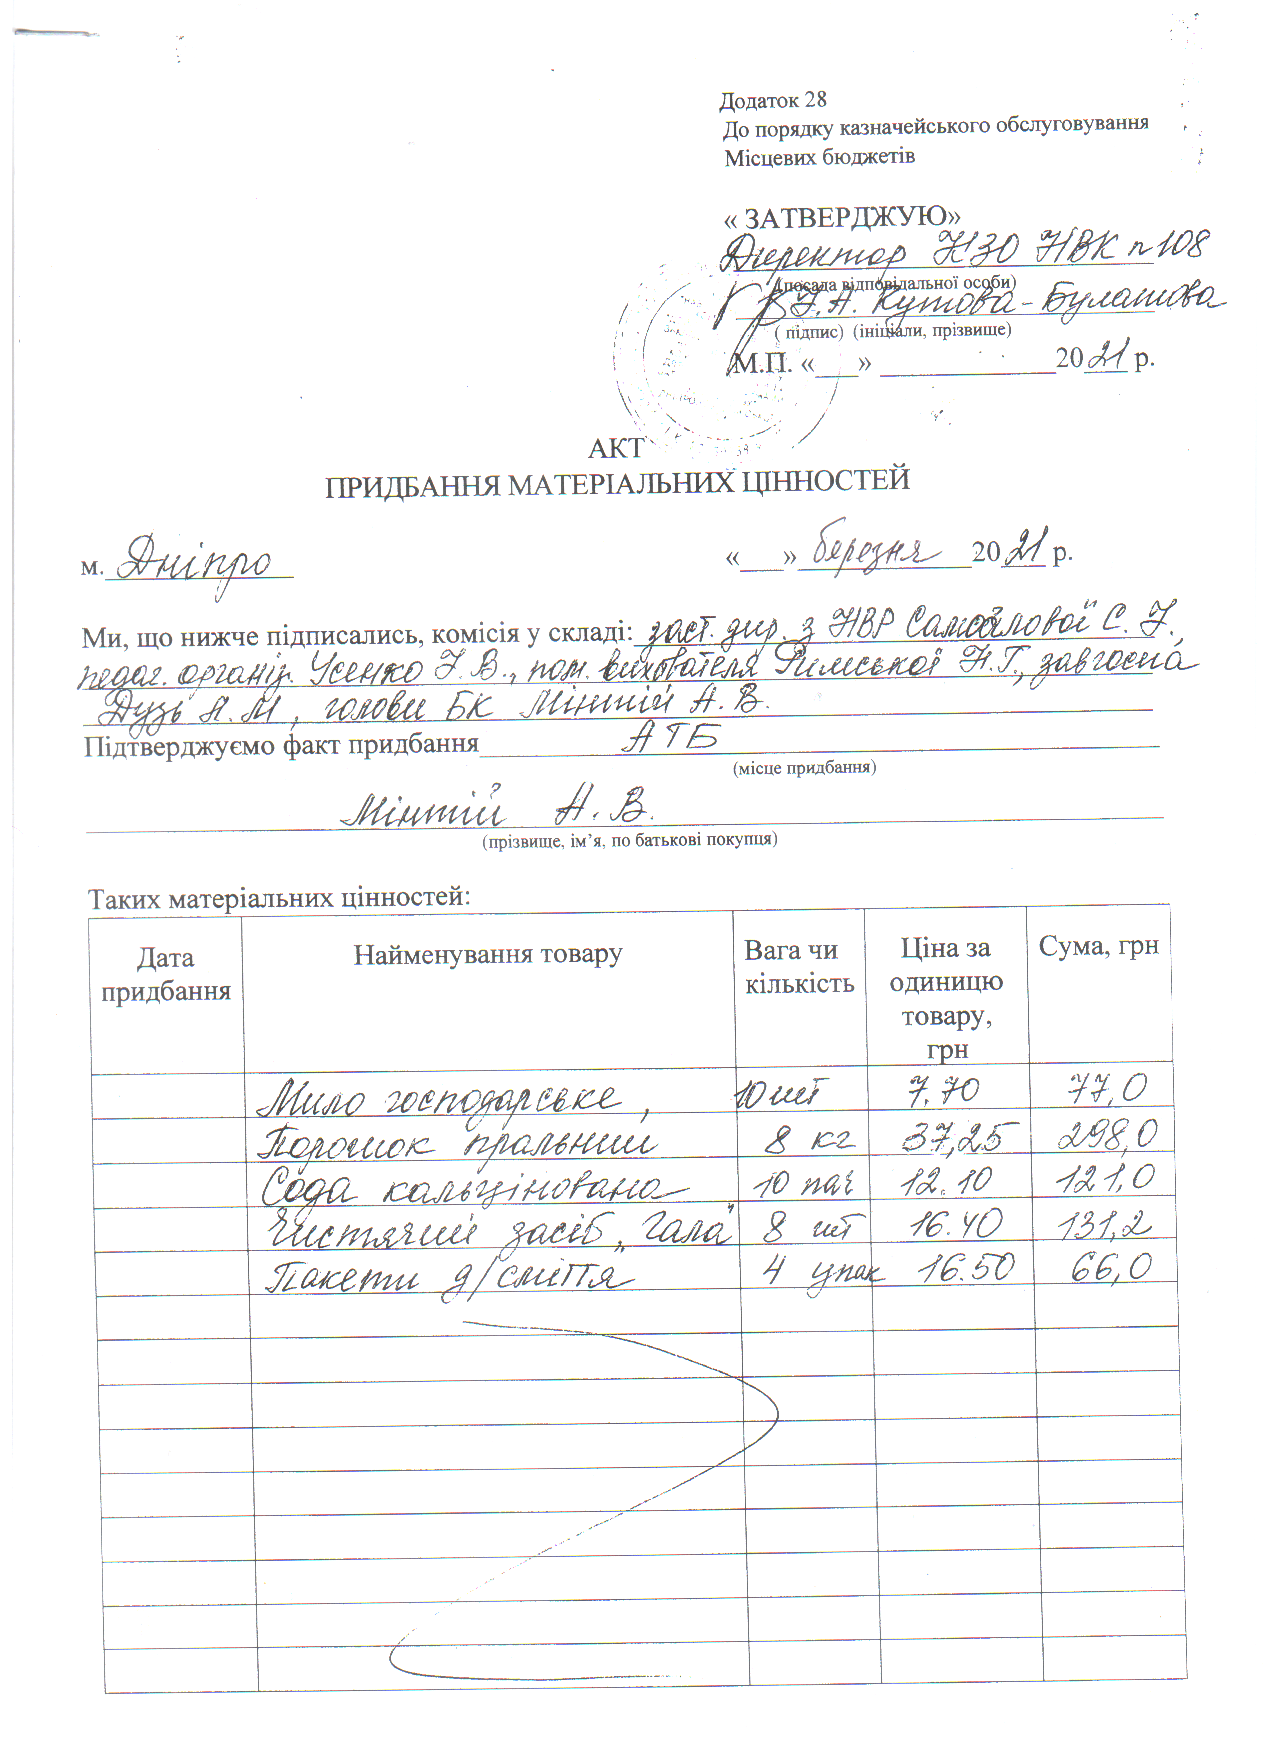 Додаток 28
До порядку казначейського обслуговування
Місцевих бюджетів
« ЗАТВЕРДЖУЮ»
Директор КЗО НВК п 108
(посада відповідальної особи)
І.А. Кутова-Булатова
( підпис) (ініціали, прізвище)
М.П. «___» ____________20 21 р.
АКТ
ПРИДБАННЯ МАТЕРІАЛЬНИХ ЦІННОСТЕЙ
м. Дніпро «___» березня 20 21 р.
Ми, що нижче підписались, комісія у складі: заст. дир. з НВР Самойлової С. І.,
педаг. організ. Усенко І. В., пом. вихователя Римської Н.Г., завгоспа
Дузь А.М, голови БК Мінтій А. В.
Підтверджуємо факт придбання АТБ
(місце придбання)
Мінтій А. В.
(прізвище, ім’я, по батькові покупця)
Таких матеріальних цінностей:
Дата придбання Найменування товару Вага чи кількість Ціна за одиницю товару, грн Сума, грн
Мило господарське, 10 шт 7.70 77,0
Порошок пральний 8 кг 37,25 298,0
Сода кальцінована 10 пач 12.10 121,0
Чистячий засіб „Гала" 8 шт 16.40 131,2
Пакети д/сміття 4 упак 16.50 66,0